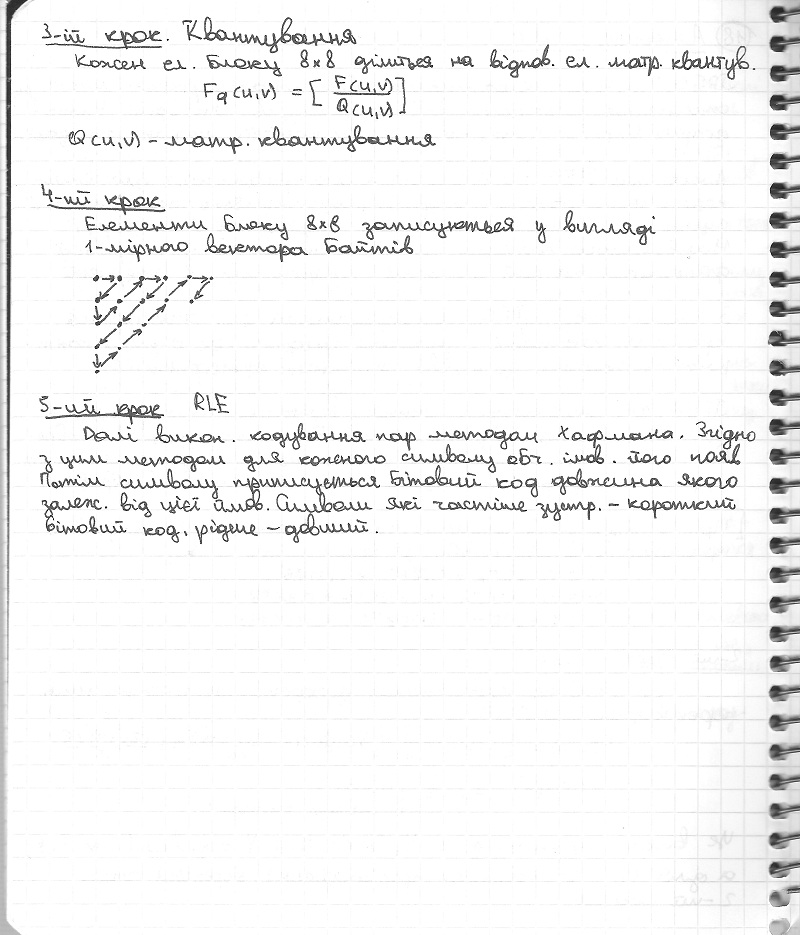 3-ій крок. Квантування
Кожен ел. блоку 8×8 ділиться на відпов. ел. матр. квантув.
Fq(u,v) = [F(u,v)/Q(u,v)]
Q(u,v) – матр. квантування
4-ий крок
Елементи блоку 8×8 записуються у вигляді
1-мірного вектора байтів
5-ий крок RLE
Далі викон. кодування пар методом Хафмана. Згідно
з цим методом для кожного символу обч. імов. його появ
Потім символу приписується бітовий код довжина якого
залеж. від цієї імов. Символи які частіше зустр. – короткий
бітовий код, рідше – довший.